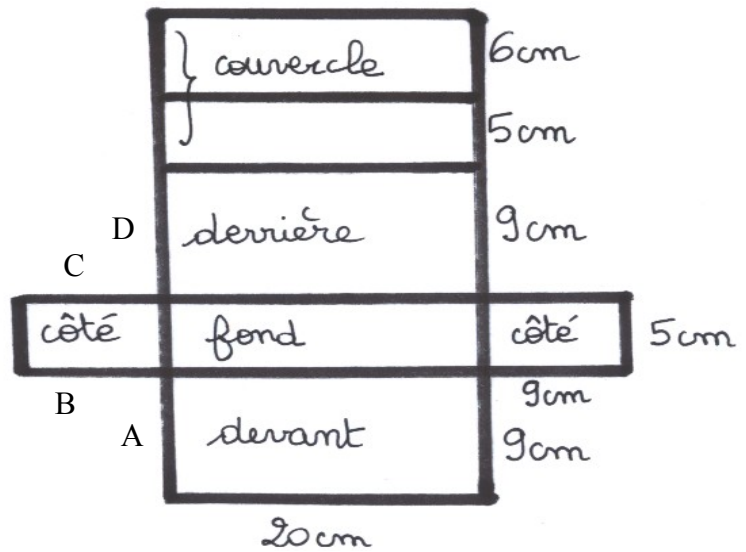 couvercle 6cm
5cm
D derrière 9cm
C
côté fond côté 5cm
B 9cm
A devant 9cm
20cm